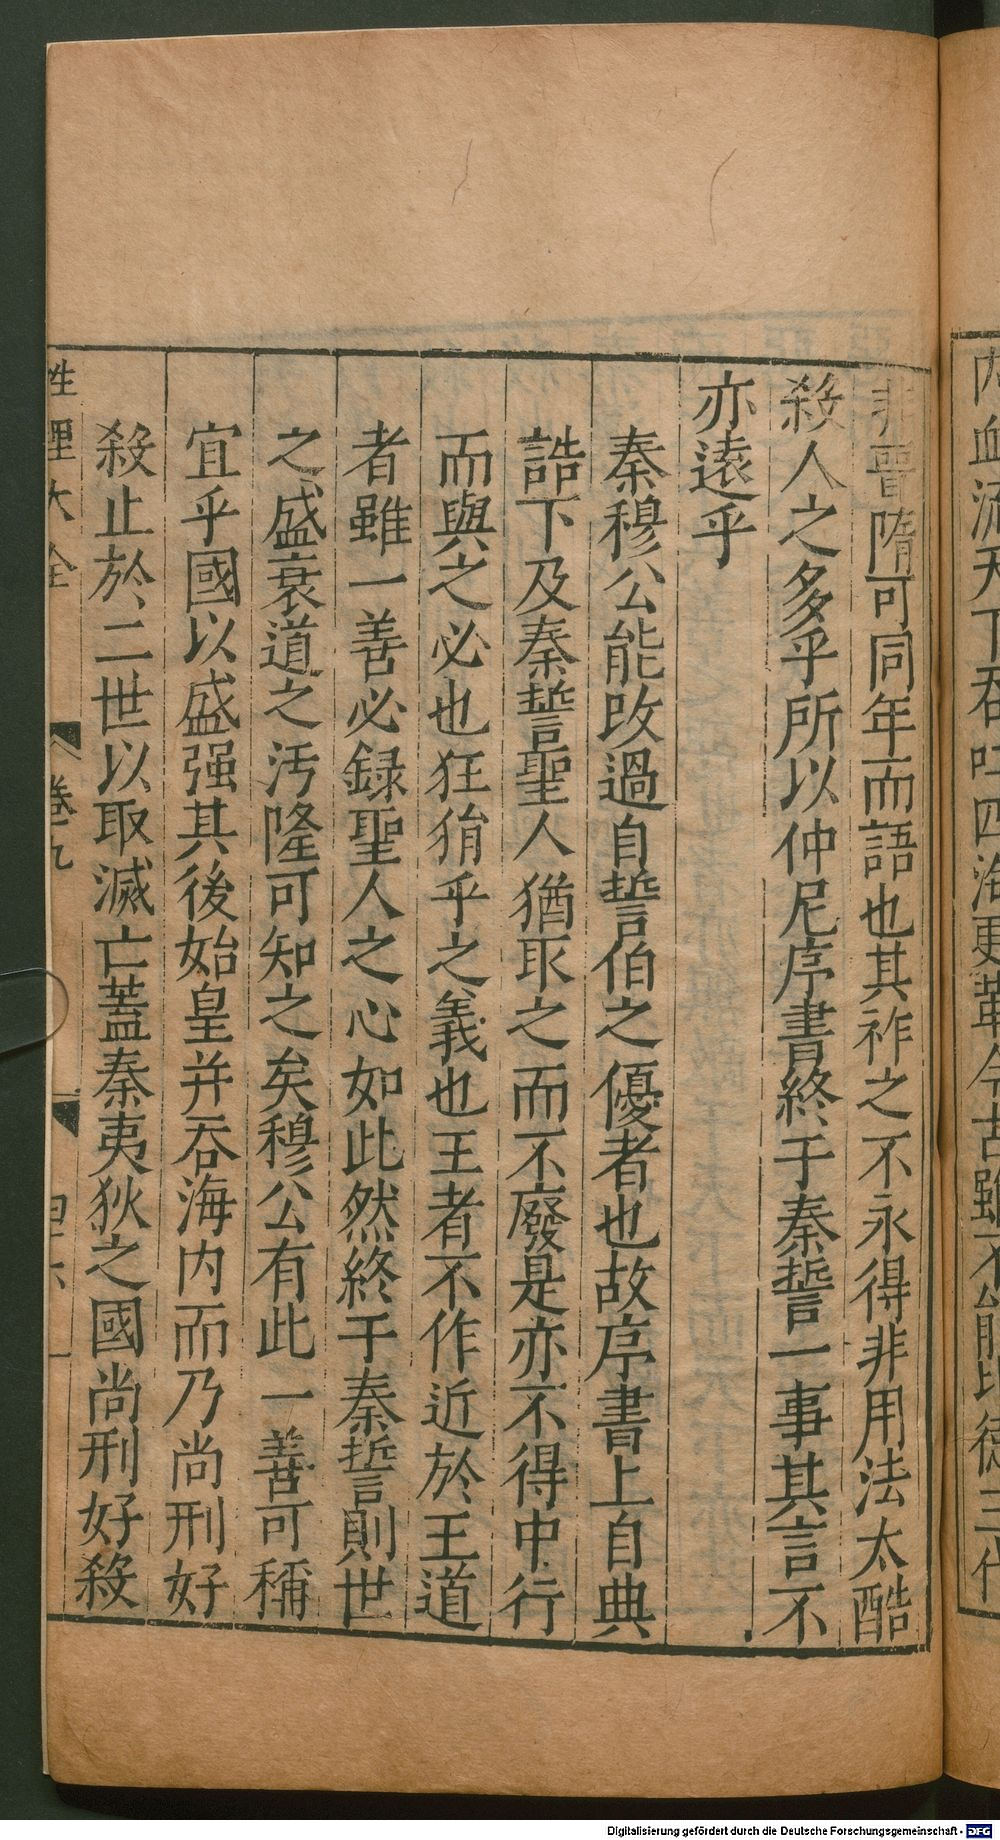 內血流天下吞吐四海更革今古雖不能比德三代
非晉隋可同年而語也其祚之不永得非用法太酷
殺人之多乎所以仲尼序書終于秦誓一事其言不
亦遠乎
秦穆公能改過自誓伯之優者也故序書上自典
誥下及秦誓聖人猶取之而不廢是亦不得中行
而與之必也狂狷乎之義也王者不作近於王道
者雖一善必録聖人之心如此然終于秦誓則世
之盛衰道之汚隆可知之矣穆公有此一善可稱
宜乎國以盛强其後始皇并吞海内而乃尚刑好
殺止於二世以取滅亡蓋秦夷狄之國尚刑好殺
性理大全 卷九 四六
Digitalisierung gefördert durch die Deutsche Forschungsgemeinschaft - DFG